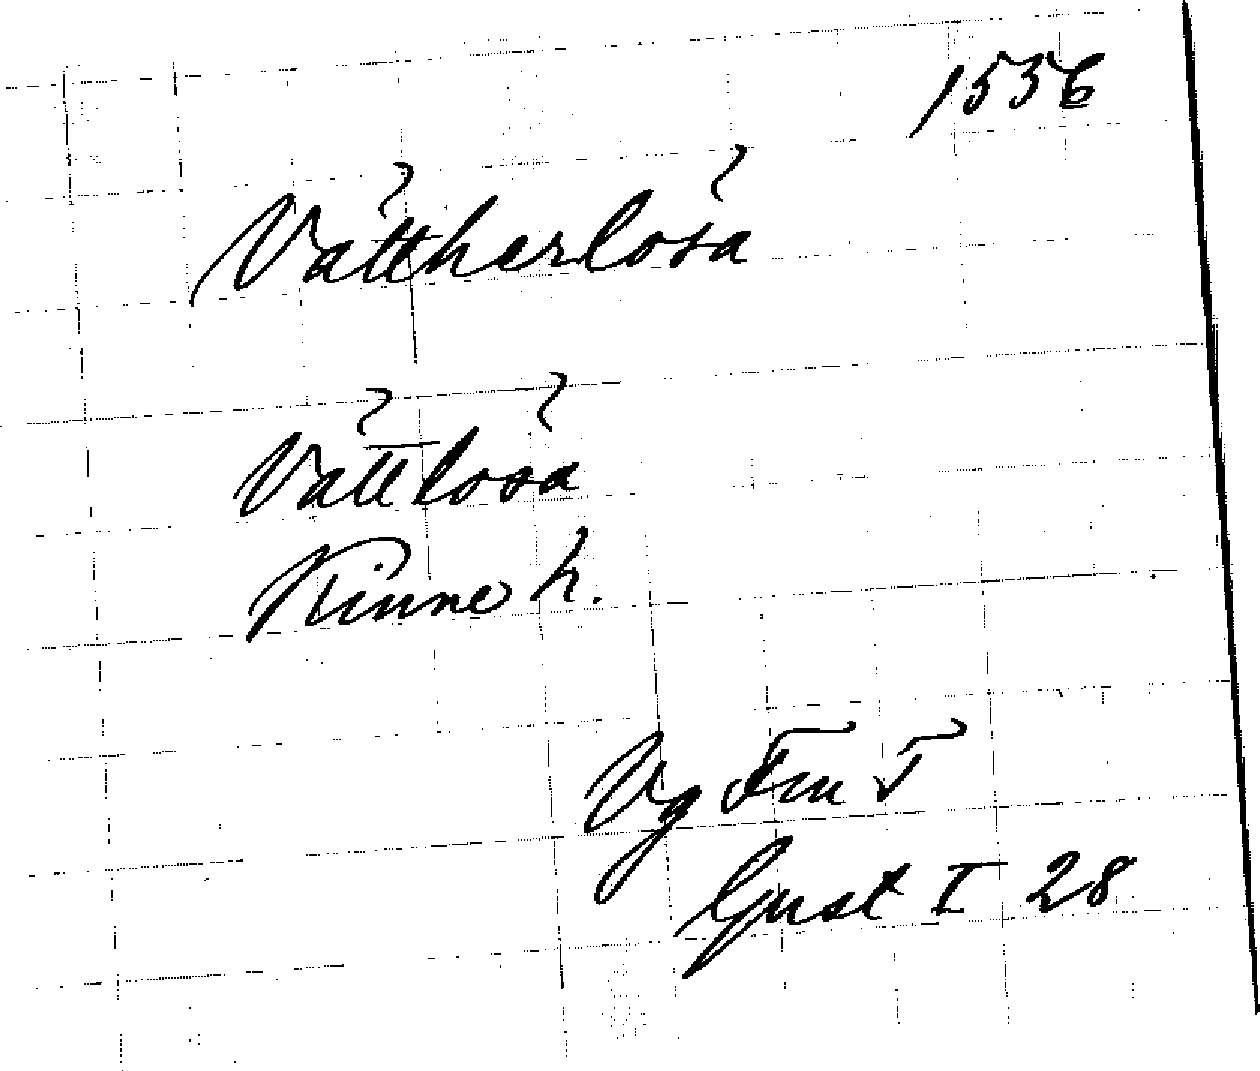 1556
Vättherlösa
Vättlösa
Kinne h.
Vg Fm T
Gust I 28